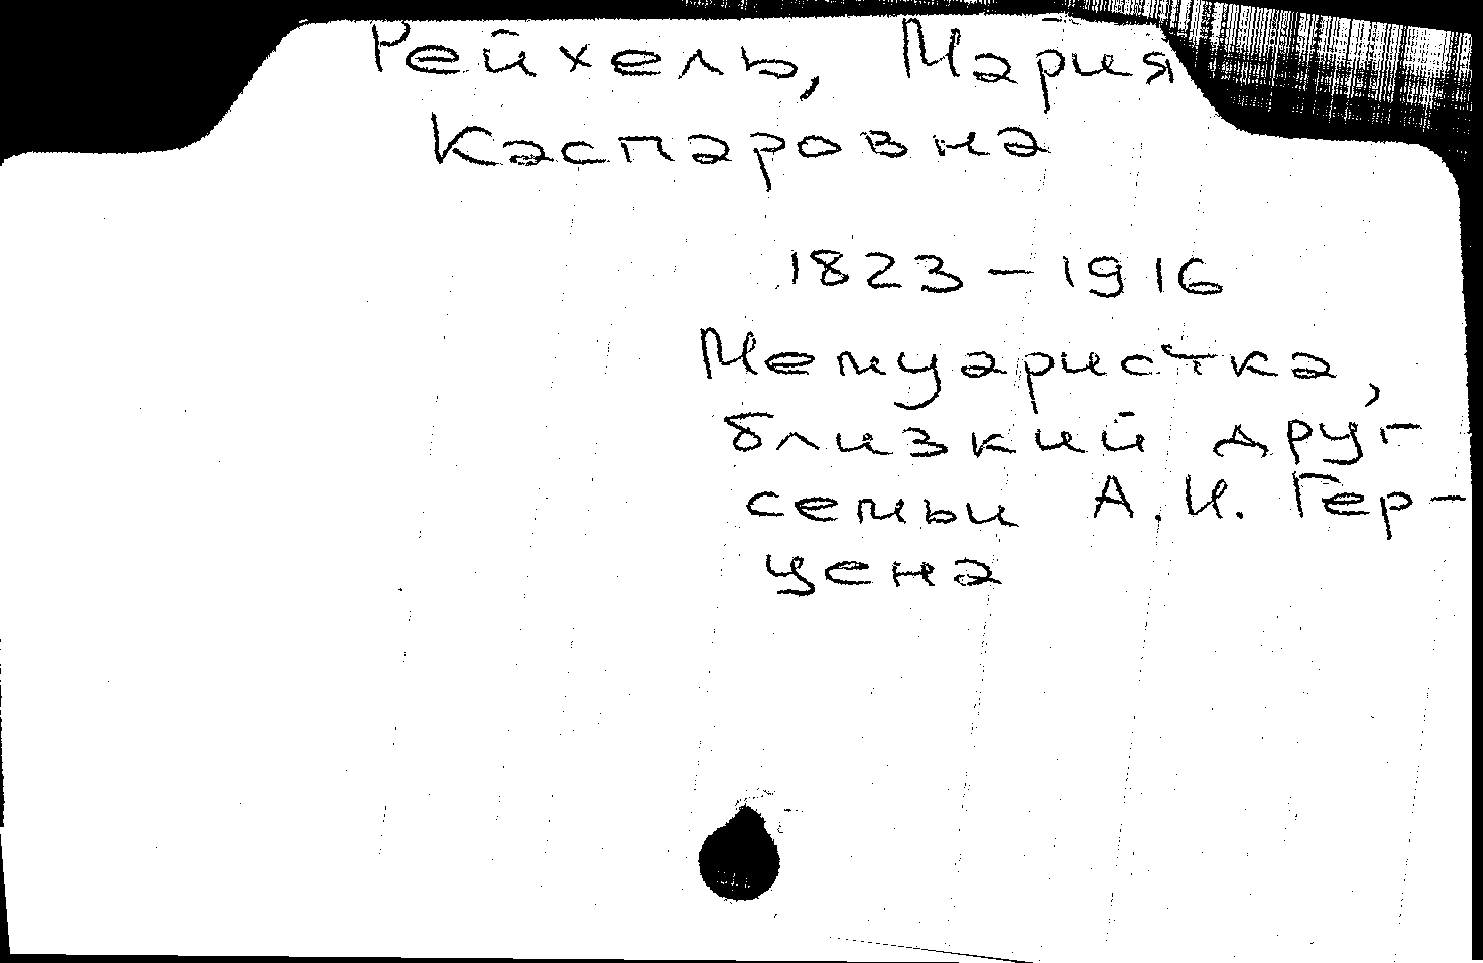 Рейхель, Мария
Каспаровна
1823 – 1916
Мемуаристка,
близкий друг
семьи А. И. Гер-
цена